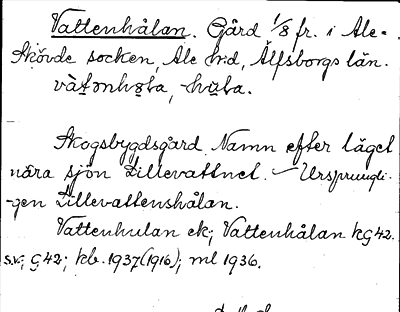 Vattenhålan. Gård 1/8 fr. i Ale-
Skövde socken, Ale hd, Älfsborgs län.
Skogsbygdsgård. Namn efter läget
nära sjön Lillevattnet. – Ursprungli-
-gen Lillevattenshålan.
Vattenhulan ek; Vattenhålan kG42.
s.v.; G42; kb. 1937(1916); ml 1936.